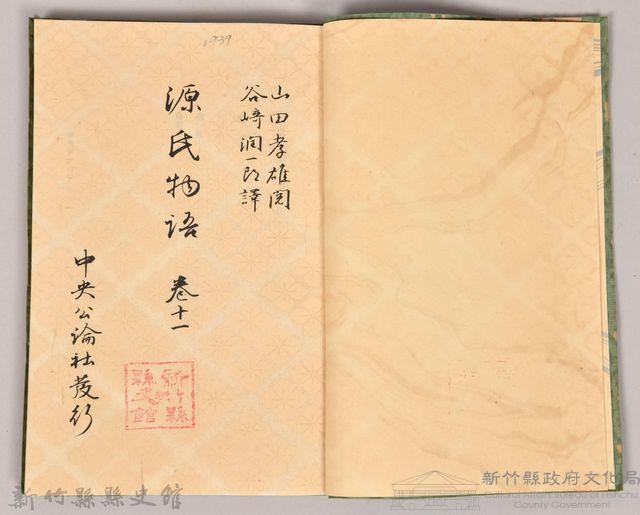 1939
山田孝雄閲
谷崎潤一郎譯
源氏物語 卷十一
中央公論社發行
新竹縣
縣史館
新竹縣縣史館
新竹縣政府文化局
Cultural Affairs Bureau of Hsinchu
County Government